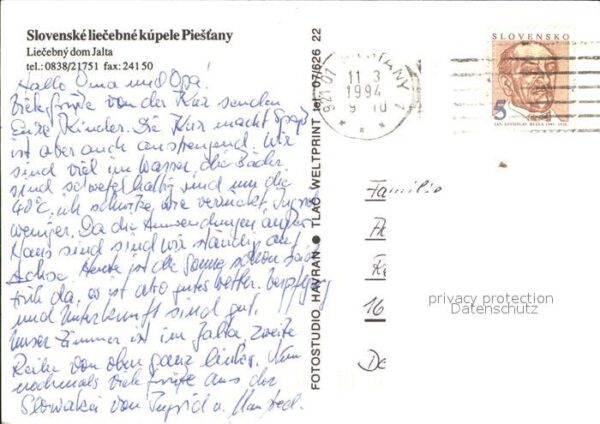 Slovenské liečebné kúpele Piešťany
Liečebný dom Jalta
tel.: 0838/21751 fax: 24150
Hallo Oma und Opa!
Viele Grüße von der Kur senden
Eure Kinder. Die Kur macht Spaß
ist aber auch anstrengend. Wir
sind viel im Wasser, die Bäder
sind schwefelhaltig und um die
40°C, ich schwitze wie verrückt, Ingrid
weniger. Da die Anwendungen außer
Haus sind sind wir ständig auf
Achse. Heute ist die Sonne schon
früh da, es ist also gutes Wetter. Verpflegung
und Unterkunft sind gut.
Unser Zimmer ist im Jalta, zweite
Reihe von oben ganz links. Nun
nochmals viele Grüße aus der
Slowakei von Ingrid u. Manfred.
FOTOSTUDIO HAVRAN ● TLAČ WELTPRINT tel. 07/626 22
921 01
11. 3
1994
9 - 10
SLOVENSKO
5
Familie
16
privacy protection
Datenschutz